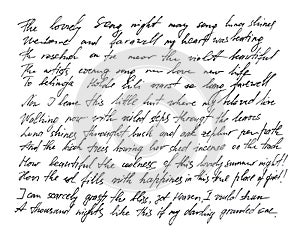 The lovely Song night may song Luna shines
Welcome and farewell my heart was beating
The rosebud on the near the violet beautiful
The artists evening song new love new life
To belinda Holde Lili must so long farewell
Now I leave this little hut where my beloved live
Walking now with veiled steps through the leaves
Luna shines throught bush and oak zephur new path
And the birch trees bowing low shed incense on the track
How beautiful the coolness of this lovely summer night!
How the soul fills with happiness in this true place of quiet!
I can scarcely grasp the bliss, yet Heaven, I would shun
A thousand nights like this if my darling granted one.